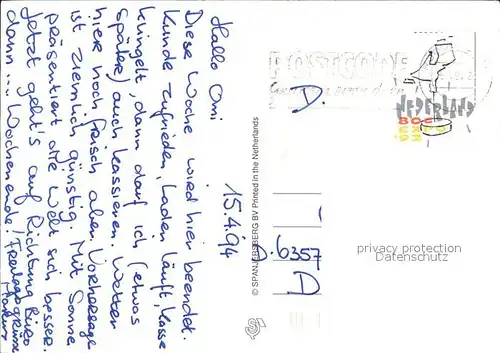 Hallo Omi
Diese Woche wird hier beendet.
Kunde zufrieden, Laden läuft, Kasse
klingelt, dann darf ich (etwas
später) auch kassieren. Wetter
hier noch frisch aber Vorhersage
ist ziemlich günstig. Mit Sonne
präsentiert die Welt sich besser.
Jetzt geht's auf Richtung Büro
dann... Wochenende! Freitagsgrüsse
Markus
15.4.94
© SPANJERSBERG BV Printed in the Netherlands
POSTCODE
NEDERLAND
80C
D.
D.6357
D
privacy protection
Datenschutz